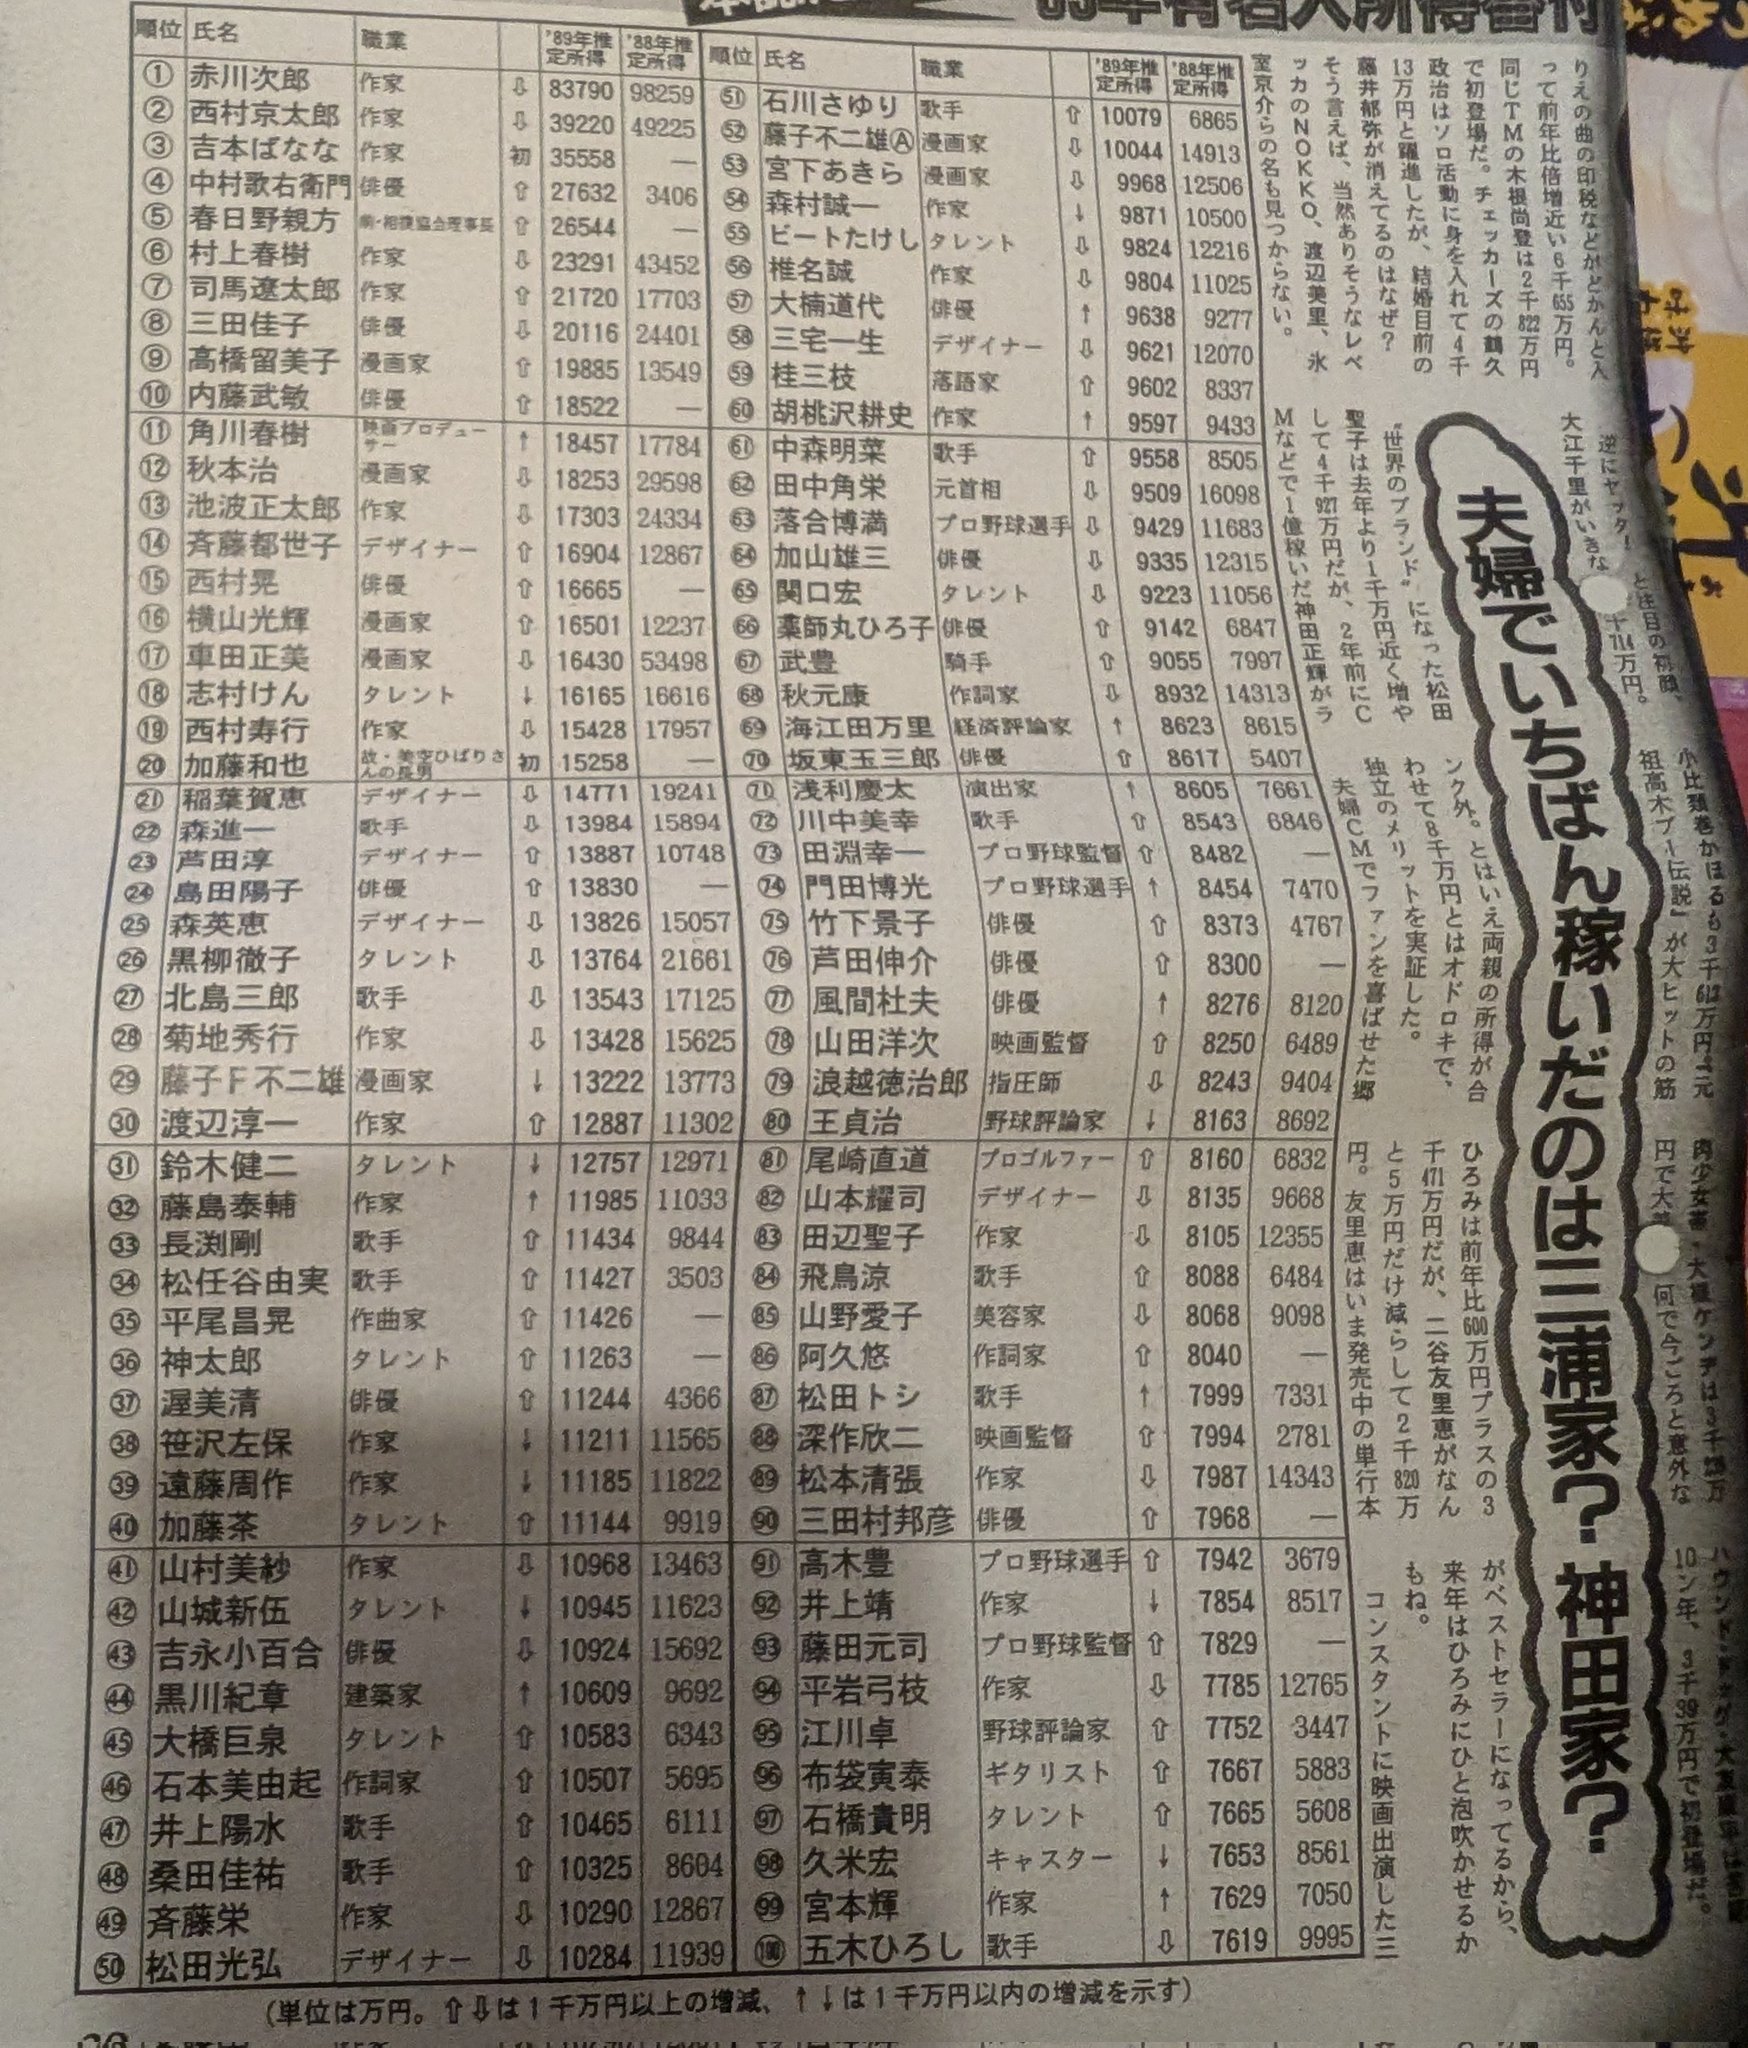 順位 氏名 職業 '89年推定所得 '88年推定所得
① 赤川次郎 作家 ⇩ 83790 98259
② 西村京太郎 作家 ⇩ 39220 49225
③ 吉本ばなな 作家 初 35558 —
④ 中村歌右衛門 俳優 ⇧ 27632 3406
⑤ 春日野親方 前・相撲協会理事長 ⇧ 26544 —
⑥ 村上春樹 作家 ⇩ 23291 43452
⑦ 司馬遼太郎 作家 ⇧ 21720 17703
⑧ 三田佳子 俳優 ⇩ 20116 24401
⑨ 高橋留美子 漫画家 ⇧ 19885 13549
⑩ 内藤武敏 俳優 ⇧ 18522 —
⑪ 角川春樹 映画プロデューサー ↑ 18457 17784
⑫ 秋本治 漫画家 ⇩ 18253 29598
⑬ 池波正太郎 作家 ⇩ 17303 24334
⑭ 斉藤都世子 デザイナー ⇧ 16904 12867
⑮ 西村晃 俳優 ⇧ 16665 —
⑯ 横山光輝 漫画家 ⇧ 16501 12237
⑰ 車田正美 漫画家 ⇩ 16430 53498
⑱ 志村けん タレント ↓ 16165 16616
⑲ 西村寿行 作家 ⇩ 15428 17957
⑳ 加藤和也 故・美空ひばりさんの長男 初 15258 —
㉑ 稲葉賀恵 デザイナー ⇩ 14771 19241
㉒ 森進一 歌手 ⇩ 13984 15894
㉓ 芦田淳 デザイナー ⇧ 13887 10748
㉔ 島田陽子 俳優 ⇧ 13830 —
㉕ 森英恵 デザイナー ⇩ 13826 15057
㉖ 黒柳徹子 タレント ⇩ 13764 21661
㉗ 北島三郎 歌手 ⇩ 13543 17125
㉘ 菊地秀行 作家 ⇩ 13428 15625
㉙ 藤子F不二雄 漫画家 ↓ 13222 13773
㉚ 渡辺淳一 作家 ⇧ 12887 11302
㉛ 鈴木健二 タレント ↓ 12757 12971
㉜ 藤島泰輔 作家 ↑ 11985 11033
㉝ 長渕剛 歌手 ⇧ 11434 9844
㉞ 松任谷由実 歌手 ⇧ 11427 3503
㉟ 平尾昌晃 作曲家 ⇧ 11426 —
㊱ 神太郎 タレント ⇧ 11263 —
㊲ 渥美清 俳優 ⇧ 11244 4366
㊳ 笹沢左保 作家 ↓ 11211 11565
㊴ 遠藤周作 作家 ↓ 11185 11822
㊵ 加藤茶 タレント ⇧ 11144 9919
㊶ 山村美紗 作家 ⇩ 10968 13463
㊷ 山城新伍 タレント ↓ 10945 11623
㊸ 吉永小百合 俳優 ⇩ 10924 15692
㊹ 黒川紀章 建築家 ↑ 10609 9692
㊺ 大橋巨泉 タレント ⇧ 10583 6343
㊻ 石本美由起 作詞家 ⇧ 10507 5695
㊼ 井上陽水 歌手 ⇧ 10465 6111
㊽ 桑田佳祐 歌手 ⇧ 10325 8604
㊾ 斉藤栄 作家 ⇩ 10290 12867
㊿ 松田光弘 デザイナー ⇩ 10284 11939
順位 氏名 職業 '89年推定所得 '88年推定所得
51 石川さゆり 歌手 ⇧ 10079 6865
52 藤子不二雄Ⓐ 漫画家 ⇩ 10044 14913
53 宮下あきら 漫画家 ⇩ 9968 12506
54 森村誠一 作家 ↓ 9871 10500
55 ビートたけし タレント ⇩ 9824 12216
56 椎名誠 作家 ⇩ 9804 11025
57 大楠道代 俳優 ↑ 9638 9277
58 三宅一生 デザイナー ⇩ 9621 12070
59 桂三枝 落語家 ⇧ 9602 8337
60 胡桃沢耕史 作家 ↑ 9597 9433
61 中森明菜 歌手 ⇧ 9558 8505
62 田中角栄 元首相 ⇩ 9509 16098
63 落合博満 プロ野球選手 ⇩ 9429 11683
64 加山雄三 俳優 ⇩ 9335 12315
65 関口宏 タレント ⇩ 9223 11056
66 薬師丸ひろ子 俳優 ⇧ 9142 6847
67 武豊 騎手 ⇧ 9055 7997
68 秋元康 作詞家 ⇩ 8932 14313
69 海江田万里 経済評論家 ↑ 8623 8615
70 坂東玉三郎 俳優 ⇧ 8617 5407
71 浅利慶太 演出家 ↑ 8605 7661
72 川中美幸 歌手 ⇧ 8543 6846
73 田淵幸一 プロ野球監督 ⇧ 8482 —
74 門田博光 プロ野球選手 ↑ 8454 7470
75 竹下景子 俳優 ⇧ 8373 4767
76 芦田伸介 俳優 ⇧ 8300 —
77 風間杜夫 俳優 ↑ 8276 8120
78 山田洋次 映画監督 ⇧ 8250 6489
79 浪越徳治郎 指圧師 ⇩ 8243 9404
80 王貞治 野球評論家 ↓ 8163 8692
81 尾崎直道 プロゴルファー ⇧ 8160 6832
82 山本耀司 デザイナー ⇩ 8135 9668
83 田辺聖子 作家 ⇩ 8105 12355
84 飛鳥涼 歌手 ⇧ 8088 6484
85 山野愛子 美容家 ⇩ 8068 9098
86 阿久悠 作詞家 ⇧ 8040 —
87 松田トシ 歌手 ↑ 7999 7331
88 深作欣二 映画監督 ⇧ 7994 2781
89 松本清張 作家 ⇩ 7987 14343
90 三田村邦彦 俳優 ⇧ 7968 —
91 高木豊 プロ野球選手 ⇧ 7942 3679
92 井上靖 作家 ↓ 7854 8517
93 藤田元司 プロ野球監督 ⇧ 7829 —
94 平岩弓枝 作家 ⇩ 7785 12765
95 江川卓 野球評論家 ⇧ 7752 3447
96 布袋寅泰 ギタリスト ⇧ 7667 5883
97 石橋貴明 タレント ⇧ 7665 5608
98 久米宏 キャスター ↓ 7653 8561
99 宮本輝 作家 ↑ 7629 7050
100 五木ひろし 歌手 ⇩ 7619 9995
(単位は万円。⇧⇩は1千万円以上の増減、↑↓は1千万円以内の増減を示す)
りえの曲の印税などがどかんと入
って前年比倍増近い6千655万円。
同じTMの木根尚登は2千822万円
で初登場だ。チェッカーズの鶴久
政治はソロ活動に身を入れて4千
13万円と躍進したが、結婚目前の
藤井郁弥が消えてるのはなぜ?
そう言えば、当然ありそうなレベ
ッカのNOKKO、渡辺美里、氷
室京介らの名も見つからない。
夫婦でいちばん稼いだのは三浦家?神田家?
逆にヤッタ! と注目の初顔、
大江千里がいきな 千714万円。
小比類巻かほるも3千613万円。元
祖高木ブー伝説』が大ヒットの筋
肉少女帯・大槻ケンヂは
円で大 何で今ごろと意外な
ハウンド・ドッグ・大友康平は
10ン年、3千39万円で初登場だ。
“世界のブランド”になった松田
聖子は去年より1千万円近く増や
して4千927万円だが、2年前にC
Mなどで1億稼いだ神田正輝がラ
ンク外。とはいえ両親の所得が合
わせて8千万円とはオドロキで、
独立のメリットを実証した。
夫婦CMでファンを喜ばせた郷
ひろみは前年比600万円プラスの3
千471万円だが、二谷友里恵がなん
と5万円だけ減らして2千820万
円。友里恵はいま発売中の単行本
がベストセラーになってるから、
来年はひろみにひと泡吹かせるか
もね。
コンスタントに映画出演した三